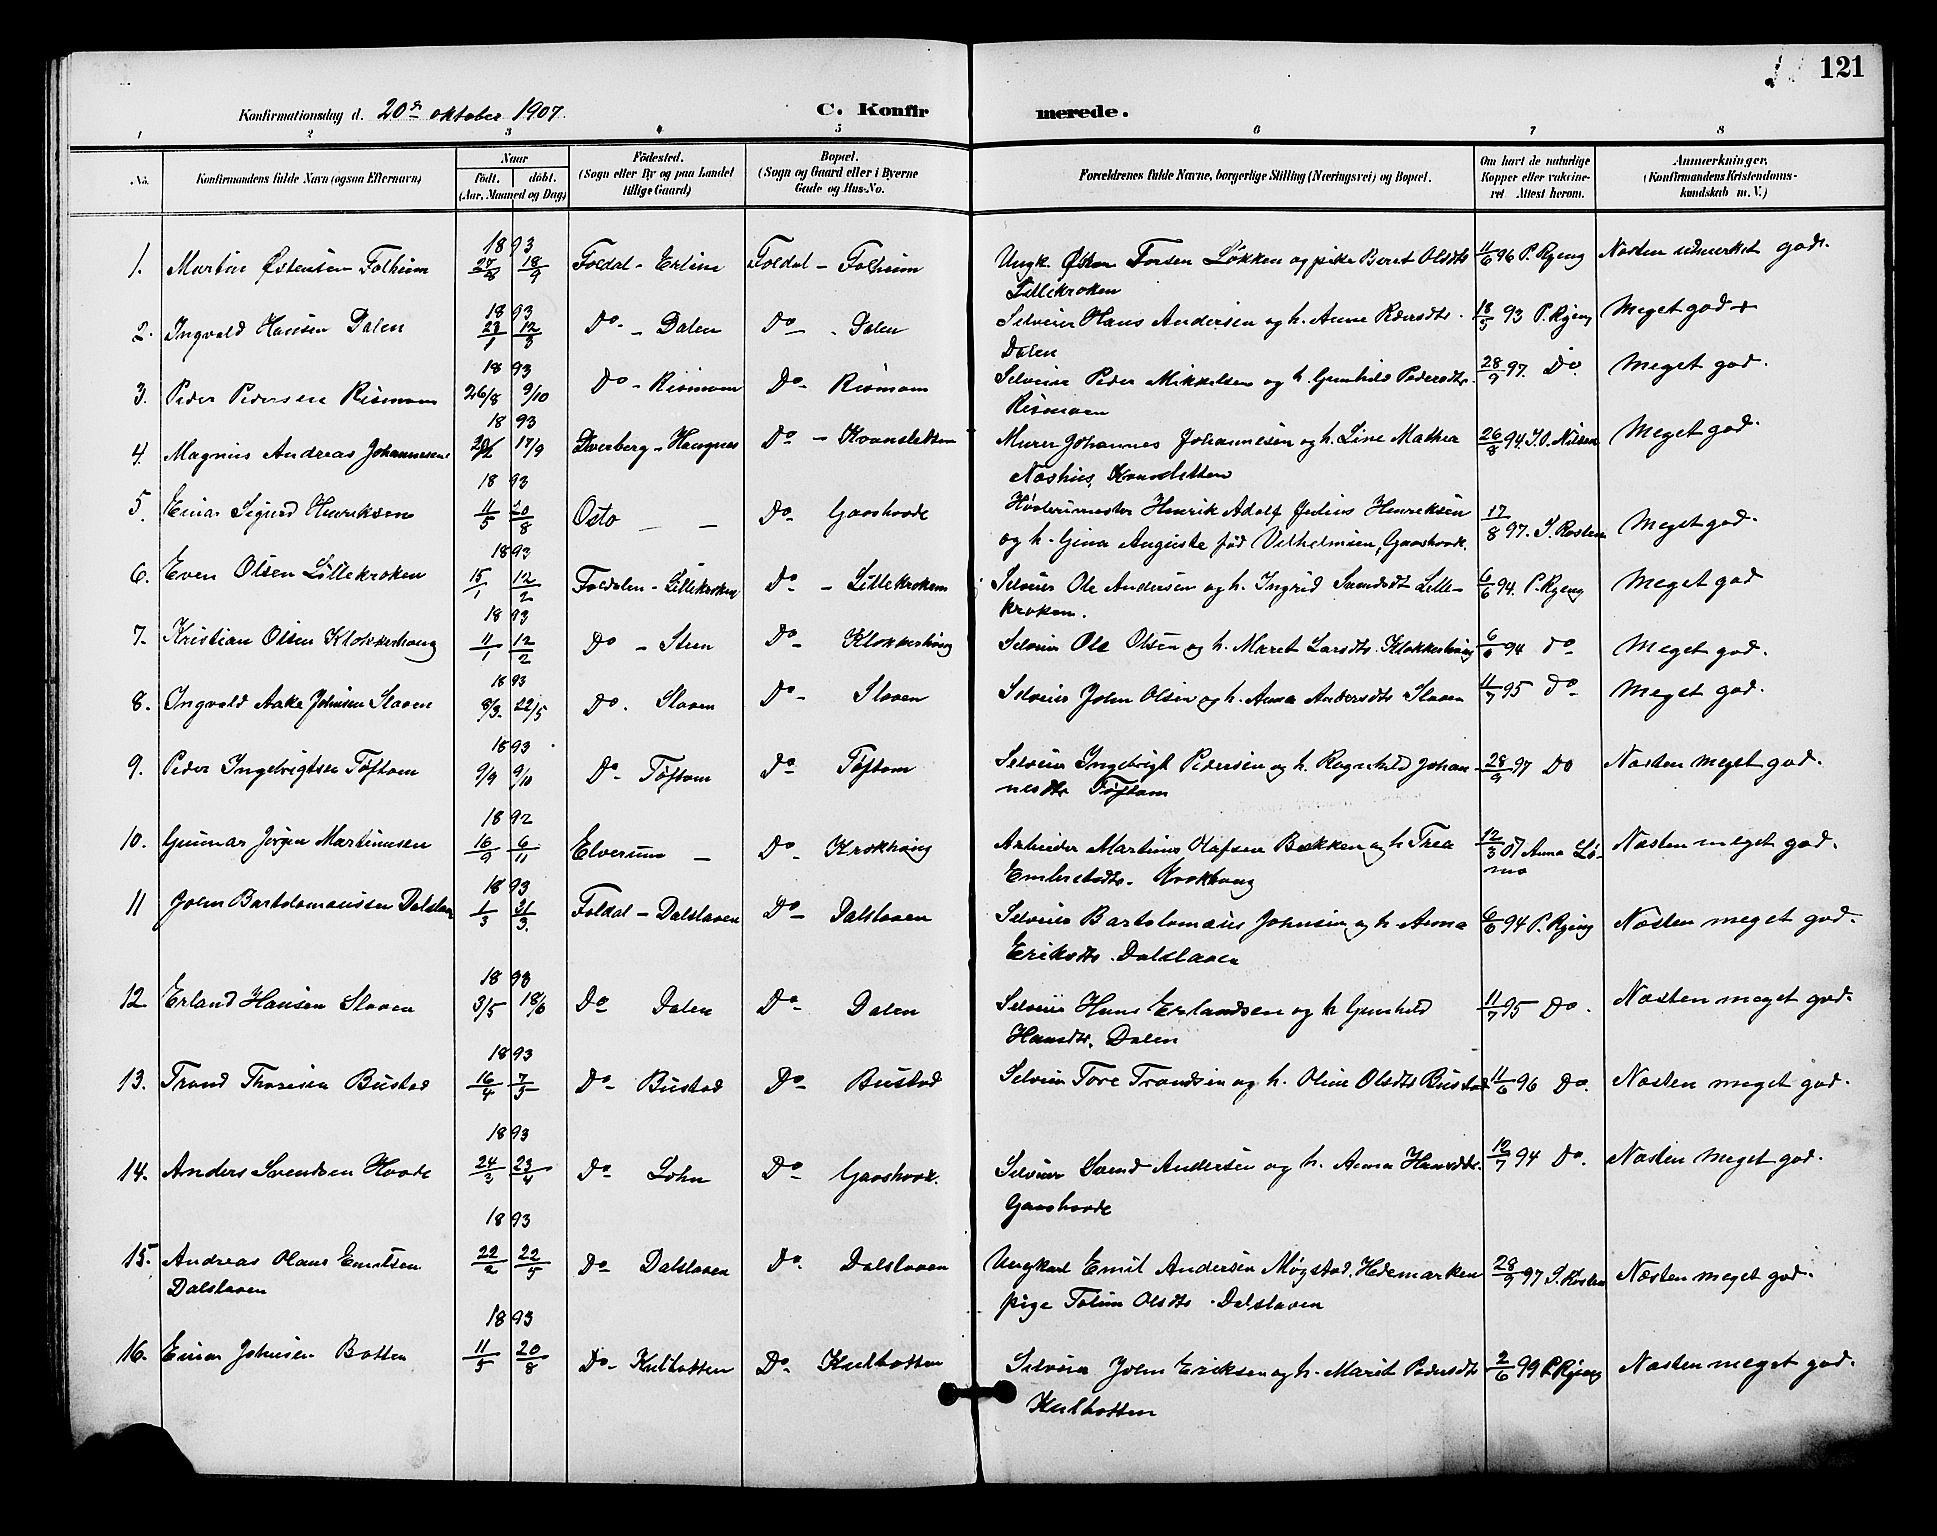 121
Konfirmationsdag d. 20de oktober 1907. C. Konfirmerede.
1 2 3 4 5 6 7 8
No. Konfirmandens fulde Navn (ogsaa Efternavn) Naar Født. døbt. (Aar, Maaned og Dag) Fødested. (Sogn eller By og paa Landet tillige Gaard) Bopæl. (Sogn og Gaard eller i Byerne Gade og Hus-No. Forældrenes fulde Navne, borgerlige Stilling (Næringsvei) og Bopæl. Om havt de naturlige Kopper eller vaccineret Attest herom. Anmærkninger. (Konfirmandens Kristendomskundskab m. V.)
1893
1. Martin Østensen Folheim 27/8 18/9 Foldal - Erlien Foldal - Folheim Ungk. Østen Torsen Løkken og pike Beret Olsdtr 11/6 96 P. Ryeng Næsten udmerket god.
Lillekroken
1893
2. Ingvald Hansen Dalen 23/1 12/3 Do - Dalen Do - Dalen Selveier Hans Andersen og h. Anne Pedersdtr. 18/5 93 P. Ryeng Meget god +
Dalen
1893
3. Peder Pedersen Rismoen 26/8 9/10 Do - Rismoen Do - Rismoen Selveier Peder Mikkelsen og h. Gunhild Pedersdtr. 28/9 97. Do. Meget god.
Rismoen
1893
4. Magnus Andreas Johannesen 17/9 Tverberg - Haugnes Do - Kvandsletten Murer Johannes Johannesen og h. Line Mathea 26/8 94. J.O. Nilsen Meget god.
Næshus, Kvandsletten
1893
5. Einar Sigurd Henriksen 11/5 20/8 Osto - - Do - Gaashovde Høvlerimester Henrik Adolf Julius Henriksen 17/8 97. S. Rosten Meget god.
og h. Gina Auguste fød Vilhelmsen, Gaashovd.
1893
6. Even Olsen Lillekroken 15/1 12/2 Foldalen - Lillekroken Do - Lillekroken Selveier Ole Andersen og h. Ingrid Svendsdt Lille- 6/6 94. P. Ryeng Meget god
kroken.
1893
7. Kristian Olsen Klokkerhaug 11/1 12/2 Do - Steen Do - Klokkerhaug Selveier Ole Olsen og h. Maret Larsdtr. Klokkerhaug 6/6 94 Do - Meget god.
1893
8. Ingvald Aake Johnsen Slaaen 8/3. 22/5 Do. Slaaen Do - Slaaen Selveier John Olsen og h. Anna Andersdtr Slaaen 11/7 95 Do - Meget god.
1893
9. Peder Ingebrigtsen Tøftom 9/9 9/10 Do - Tøftom Do - Tøftom Selveier Ingebrigt Pedersen og h. Ragnhild Johan- 28/9 97 Do Næsten meget god.
nesdtr Tøftom
1892
10. Gunnar Jørgen Martinusen 16/9 6/11 Elverum - Do - Krokhaug Arbeider Martinus Olafsen Bakken og h Thea 12/3 07 Anna Lø- Næsten meget god.
Embretsdtr. Krokhaug mo
1893
11 John Bartolomæussen Dalslaaen 1/3 31/3. Foldal - Dalslaaen Do - Dalslaaen Selveier Bartolomæus Johnsen og h Anna 6/6 94 P. Ryeng Næsten meget god.
Eriksdtr. Dalslaaen
1893
12 Erland Hansen Slaaen 3/5 18/6 Do Dalen Do - Dalen Selveier Hans Erlandsen og h Gunhild 11/7 95 Do. Næsten meget god.
Hansdtr. Dalen
1893
13. Trond Thoresen Bustad 16/4 7/5 Do - Bustad Do - Bustad Selveier Tore Trondsen og h. Oline Olsdtr Bustad 11/6 96 Do. Næsten meget god.
1893
14. Anders Svendsen Hovde 24/3 23/4 Do Lohn Do - Gaashovde. Selveier Svend Andersen og h. Anna Hansdtr. 12/7 94 Do. Næsten meget god.
Gaashovde
1893
15. Andreas Olaus Emilsen 22/2 22/5 Do - Dalslaaen Do. Dalslaaen Ungkarl Emil Andersen Møgstad, Hedemarken 28/9 97 S. Rosten Næsten meget god.
Dalslaaen pige Tolina Olsdtr. Dalslaaen
1893
16. Einar Johnsen Botten 11/5 20/8 Do - Kulbotten Do. Kulbotten Selveier John Eriksen og h. Marit Pedersdtr 2/6 99 P. Ryeng Næsten meget god.
Kulbotten